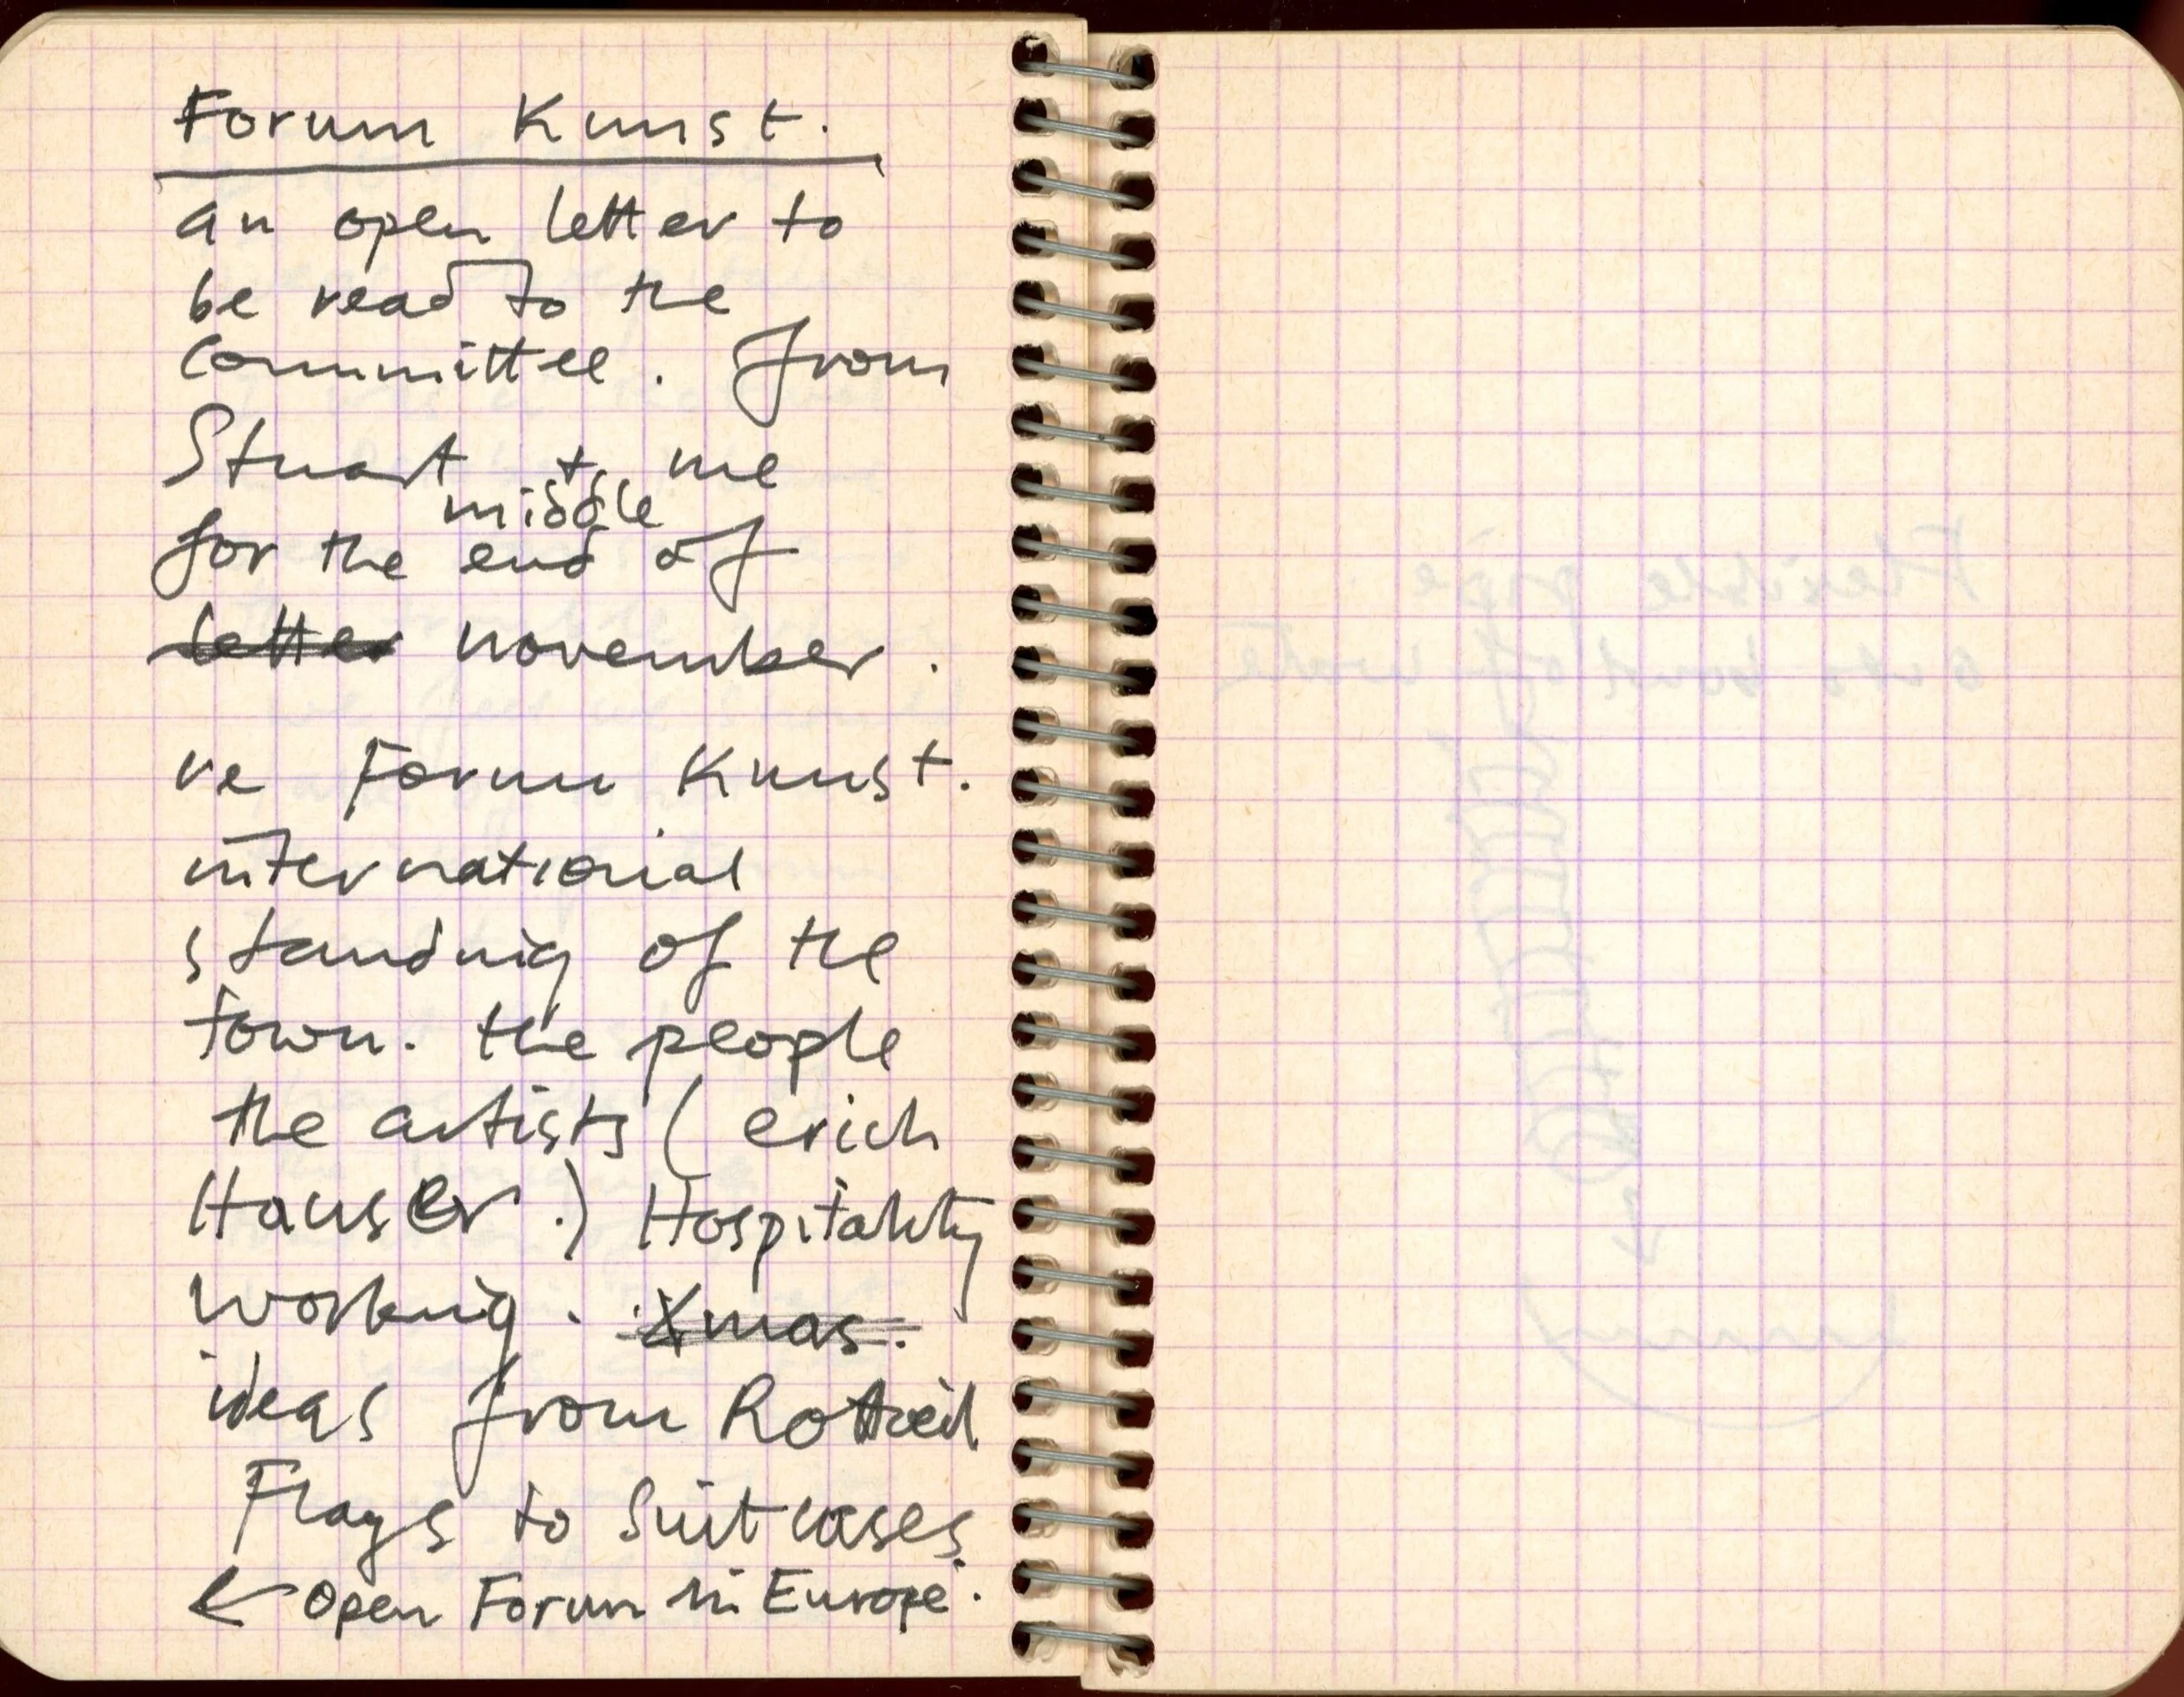 Forum Kunst.
an open letter to
be read to the
Committee. from
Stuart + me
middle
for the end of
letter november.
re Forum Kunst.
international
standing of the
town. the people
the artists (erich
Hauser.) Hospitality
working. Xmas.
ideas from Rottweil
Flags to Suitcases.
← Open Forum in Europe.
Flexible pipe